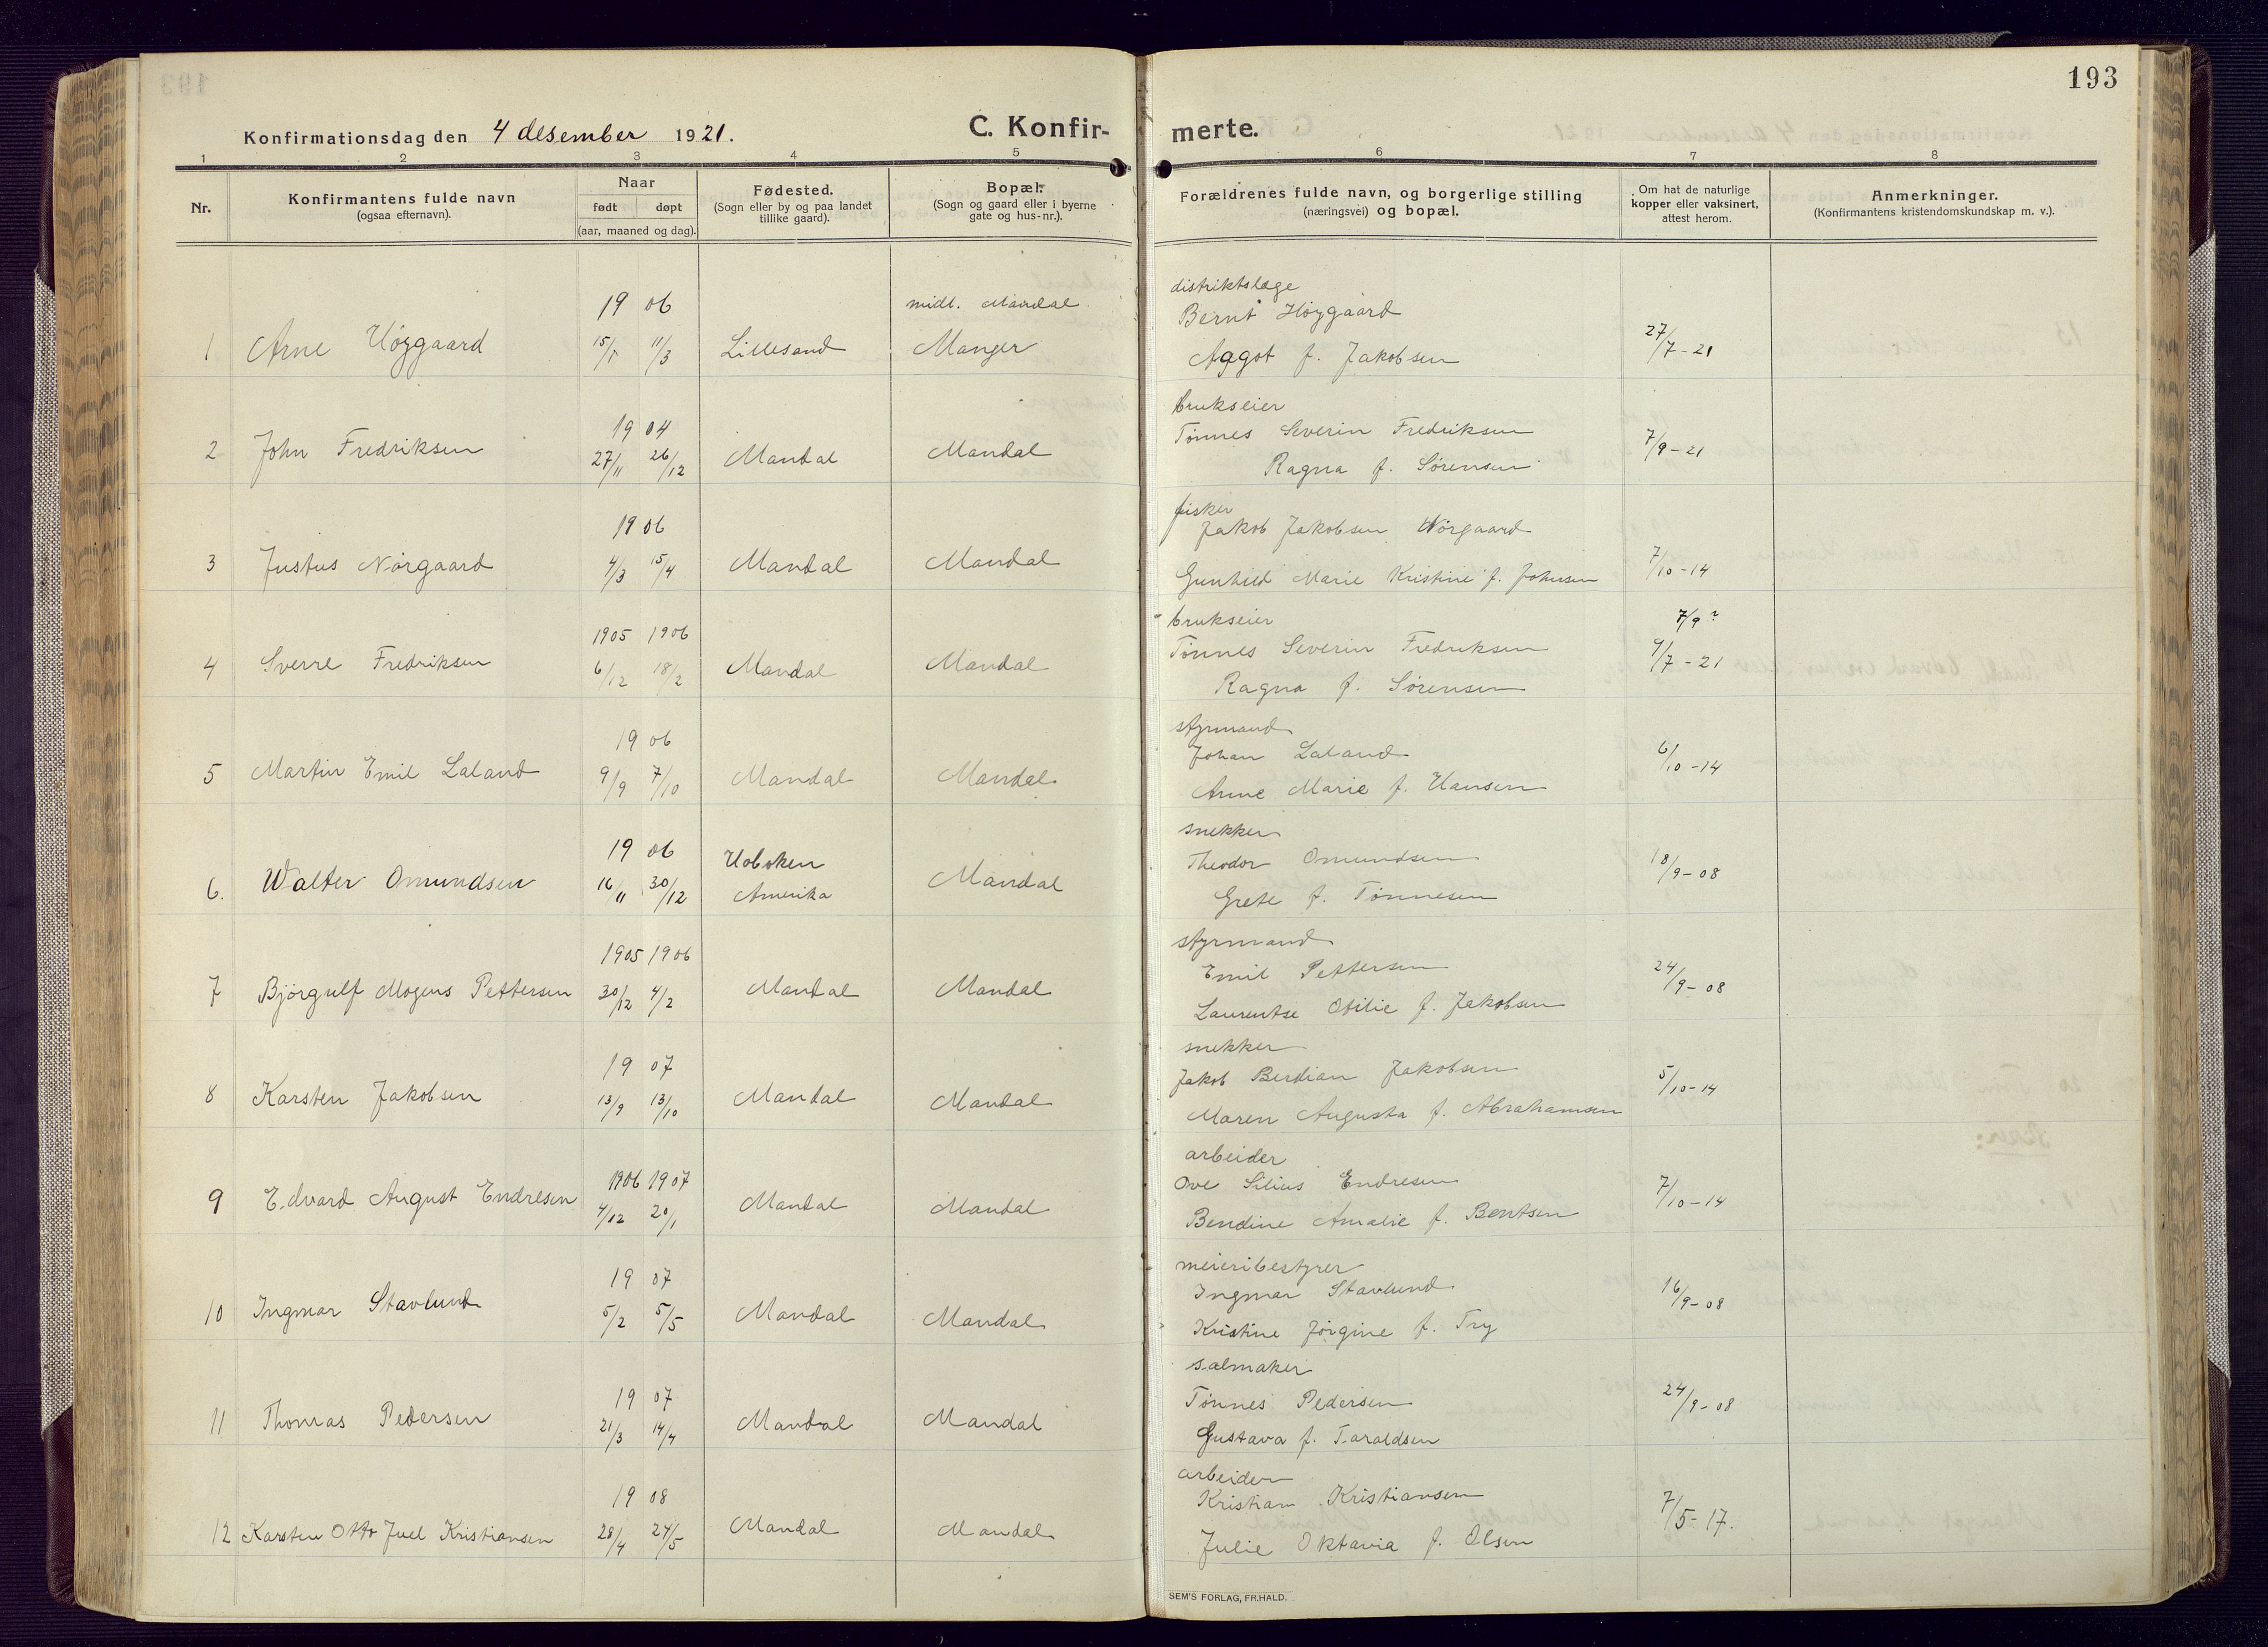 193
Konfirmationsdag den 4 desember 1921. C. Konfirmerte.
1 2 3 4 5 6 7 8
Nr.
Konfirmantens fulde navn
(ogsaa efternavn).
Naar
født døpt
(aar, maaned og dag).
Fødested.
(Sogn eller by og paa landet
tillike gaard).
Bopæl.
(Sogn og gaard eller i byerne
gate og hus-nr.).
Forældrenes fulde navn, og borgerlige stilling
(næringsvei) og bopæl.
Om hat de naturlige
kopper eller vaksinert,
attest herom.
Anmerkninger.
(Konfirmantens kristendomskundskap m. v.).
distriktslæge
19 06 midl. Mandal Bernt Høygaard
1 Arne Høygaard 15/1 11/3 Lillesand Manger Aagot f. Jakobsen 27/7-21
brukseier
19 04 Tønnes Severin Fredriksen
2 John Fredriksen 27/11 26/12 Mandal Mandal Ragna f. Sørensen 7/9-21
fisker
19 06 Jakob Jakobsen Nørgaard
3 Justus Nørgaard 4/3 15/4 Mandal Mandal Gunhild Marie Kristine f. Johnsen 7/10-14
brukseier 7/9?
1905 1906 Tønnes Severin Fredriksen
4 Sverre Fredriksen 6/12 18/2 Mandal Mandal Ragna f. Sørensen 4/7-21
styrmand
19 06 Johan Laland
5 Martin Emil Laland 9/9 7/10 Mandal Mandal Anne Marie f. Hansen 6/10-14
snekker
19 06 Hoboken Theodor Omundsen
6. Walter Omundsen 16/11 30/12 Amerika Mandal Grete f. Tønnesen 18/9-08
styrmand
1905 1906 Emil Pettersen
7 Bjørgulf Mogens Pettersen 30/12 4/2 Mandal Mandal Laurentse Otilie f. Jakobsen 24/9-08
snekker
19 07 Jakob Berdian Jakobsen
8 Karsten Jakobsen 13/9 13/10 Mandal Mandal Maren Augusta f. Abrahamsen 5/10-14
arbeider
1906 1907 Ove Silius Endresen
9 Edvard August Endresen 4/12 20/1 Mandal Mandal Bendine Amalie f. Bentsen 7/10-14
meieribestyrer
19 07 Ingmar Stavlund
10 Ingmar Stavlund 5/2 5/5 Mandal Mandal Kristine Jørgine f. Try 16/9-08
salmaker
19 07 Tønnes Pedersen
11 Thomas Pedersen 21/3 14/4 Mandal Mandal Gustava f. Taraldsen 24/9-08
arbeider
19 08 Kristian Kristiansen
12 Karsten Otto Juel Kristiansen 28/4 24/5 Mandal Mandal Julie Oktavia f. Olsen 7/5-17.
SEM'S FORLAG, FR.HALD.